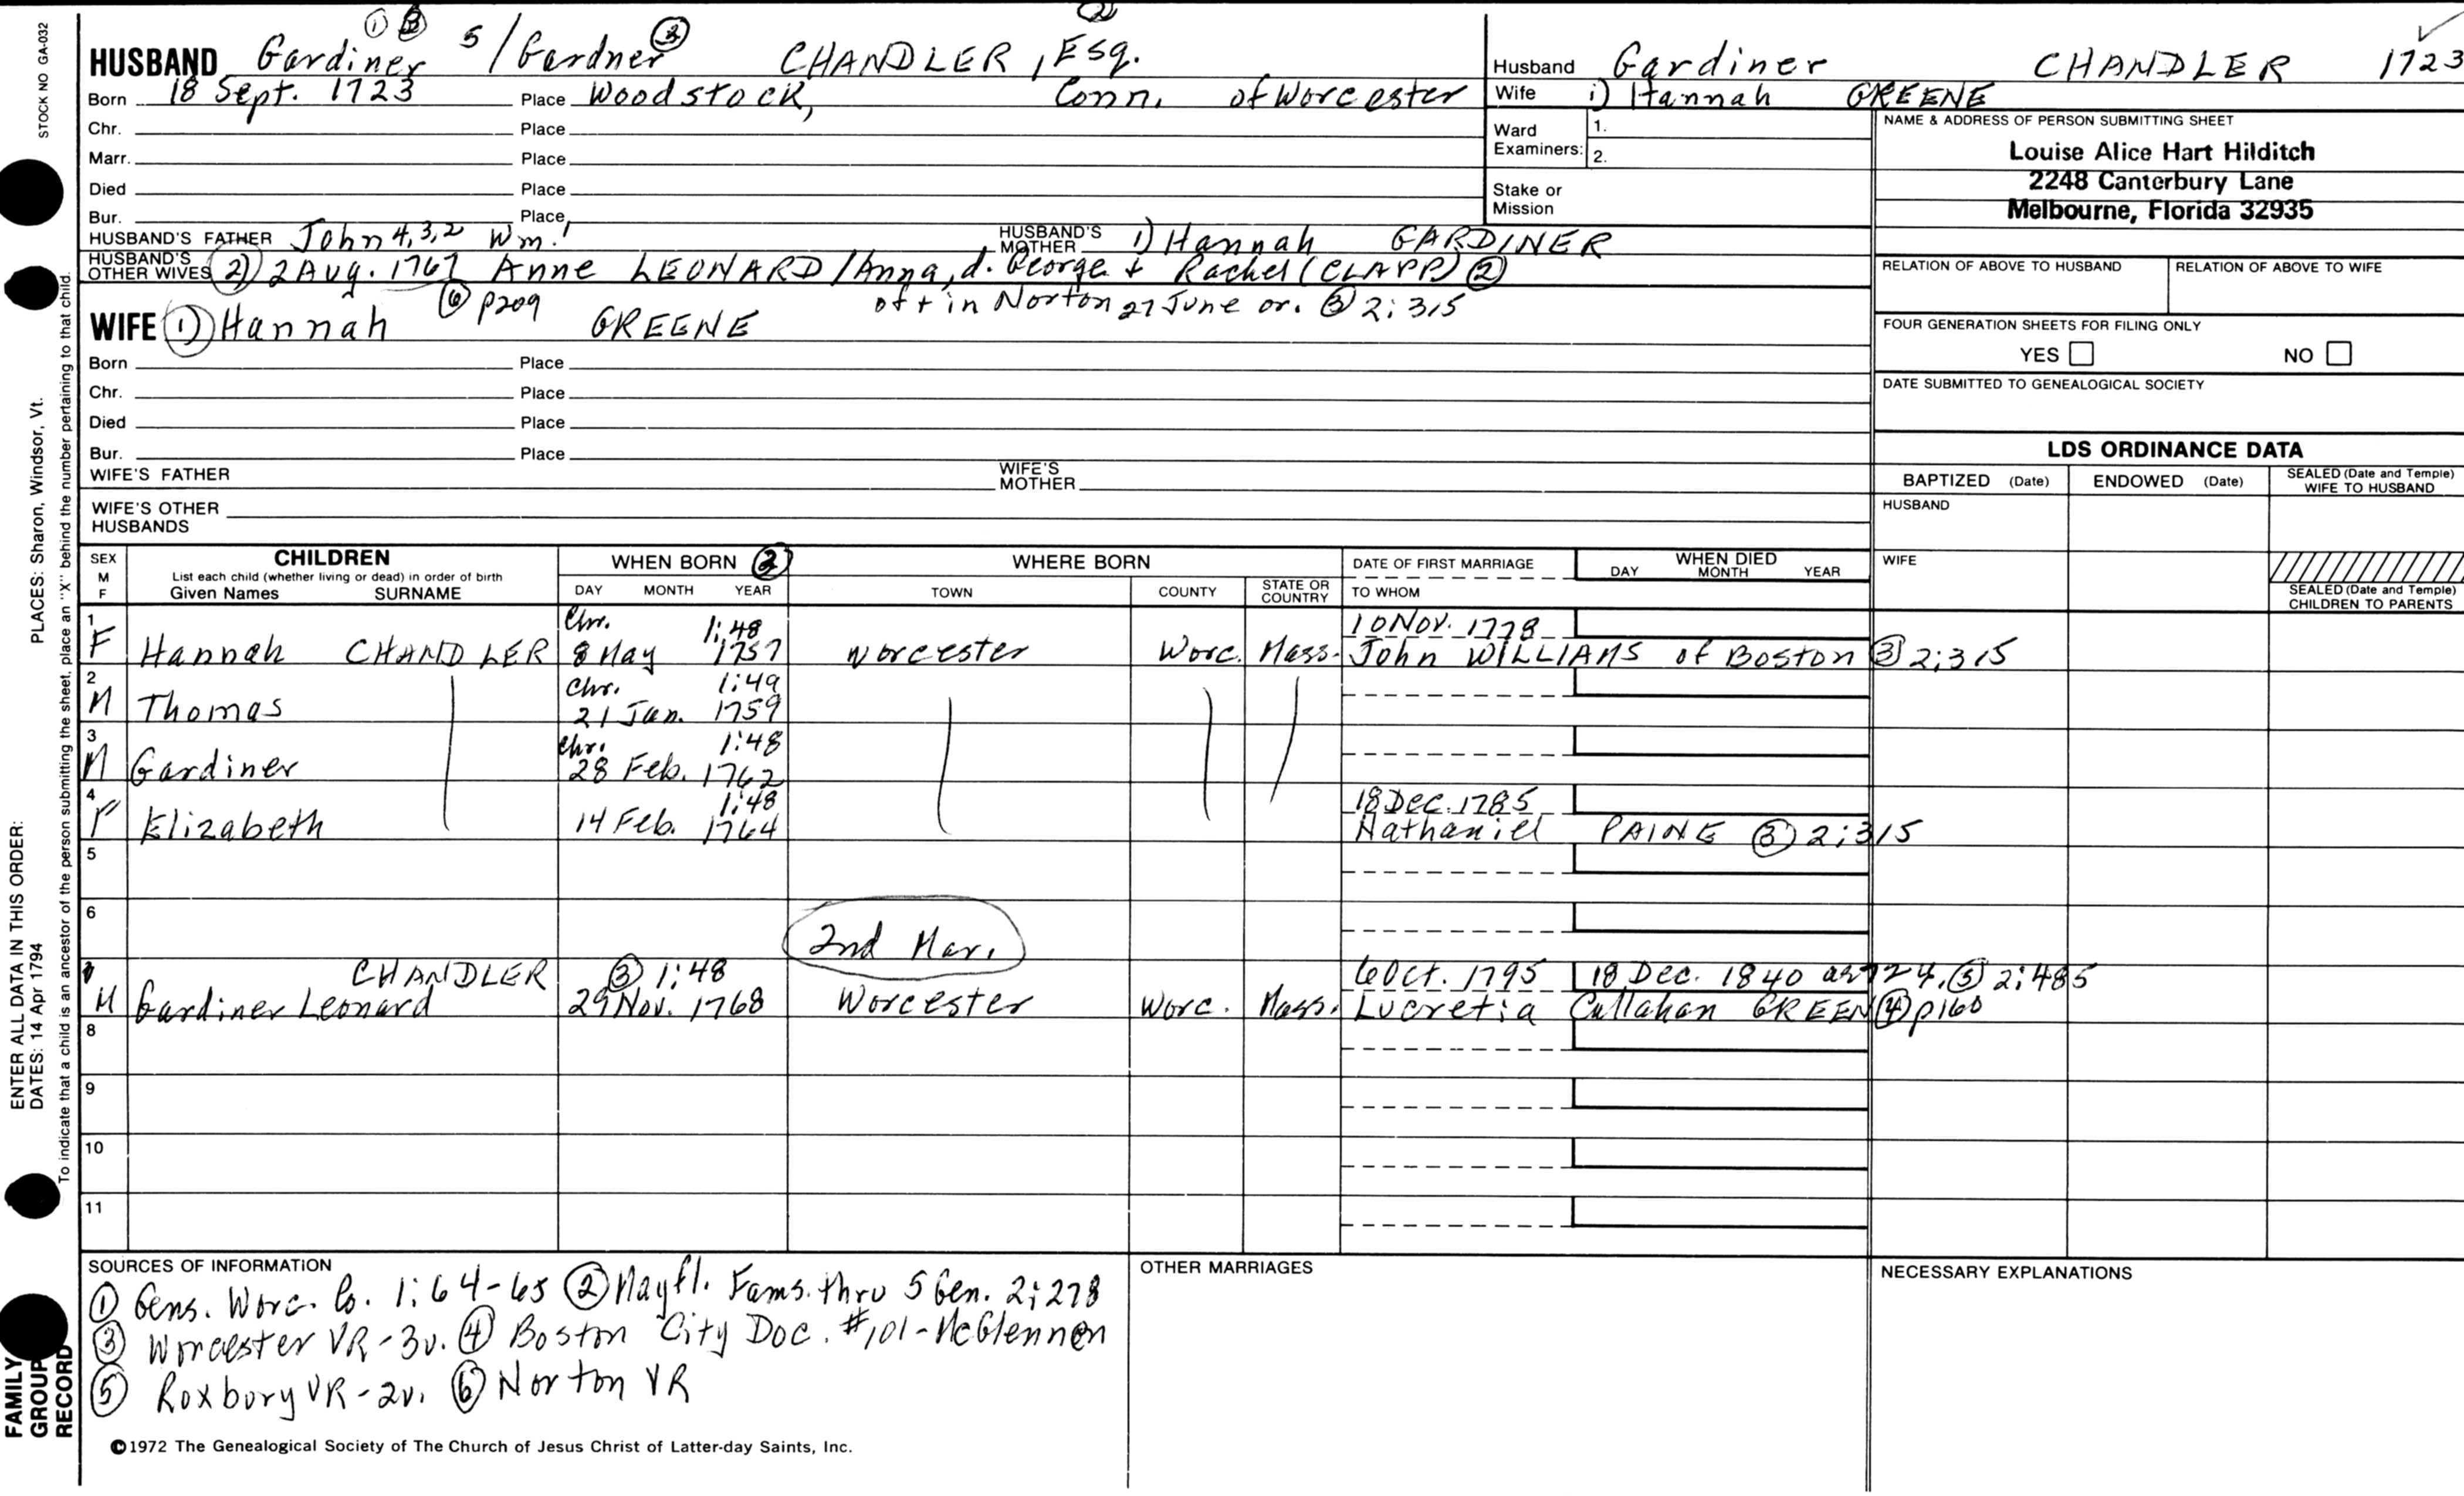 STOCK NO GA-032
① ③ 5 ③ ②
HUSBAND Gardiner / Gardner CHANDLER, Esq.
Born 18 Sept. 1723 Place Woodstock, Conn. of Worcester
Chr. Place
Marr. Place
Died Place
Bur. Place
HUSBAND'S FATHER John 4,3,2 Wm.1 HUSBAND'S MOTHER 1) Hannah GARDINER
HUSBAND'S OTHER WIVES 2) 2 Aug. 1767 Anne LEONARD/Anna, d. George + Rachel (CLAPP) ②
⑥ p209 of + in Norton 27 June or. ③ 2:315
WIFE 1) Hannah GREENE
Born Place
Chr. Place
Died Place
Bur. Place
WIFE'S FATHER WIFE'S MOTHER
WIFE'S OTHER HUSBANDS
Husband Gardiner CHANDLER 1723
Wife 1) Hannah GREENE
Ward Examiners: 1.
2.
Stake or Mission
NAME & ADDRESS OF PERSON SUBMITTING SHEET
Louise Alice Hart Hilditch
2248 Canterbury Lane
Melbourne, Florida 32935
RELATION OF ABOVE TO HUSBAND RELATION OF ABOVE TO WIFE
FOUR GENERATION SHEETS FOR FILING ONLY
YES NO
DATE SUBMITTED TO GENEALOGICAL SOCIETY
LDS ORDINANCE DATA
BAPTIZED (Date) ENDOWED (Date) SEALED (Date and Temple) WIFE TO HUSBAND
HUSBAND
WIFE
SEALED (Date and Temple) CHILDREN TO PARENTS
SEX M F CHILDREN WHEN BORN ③ WHERE BORN DATE OF FIRST MARRIAGE WHEN DIED
List each child (whether living or dead) in order of birth
Given Names SURNAME DAY MONTH YEAR TOWN COUNTY STATE OR COUNTRY TO WHOM DAY MONTH YEAR
1 Chr. 1:48 10 Nov. 1778
F Hannah CHANDLER 8 May 1757 Worcester Worc. Mass. John WILLIAMS of Boston ③ 2:315
2 Chr. 1:49
M Thomas 21 Jan. 1759
3 Chr. 1:48
M Gardiner 28 Feb. 1762
4 1:48 18 Dec. 1785
F Elizabeth 14 Feb. 1764 Nathaniel PAINE ③ 2:315
5
6
2nd Mar.
7 CHANDLER ③ 1:48 6 Oct. 1795 18 Dec. 1840 ae 72 y. ⑤ 2:485
M Gardiner Leonard 29 Nov. 1768 Worcester Worc. Mass. Lucretia Callahan GREEN ④ p160
8
9
10
11
SOURCES OF INFORMATION
① Gens. Worc. Co. 1:64-65 ② Mayfl. Fams. thru 5 Gen. 2:278
③ Worcester VR-3v. ④ Boston City Doc. #101-McGlennen
⑤ Roxbury VR-2v. ⑥ Norton VR
OTHER MARRIAGES
NECESSARY EXPLANATIONS
©1972 The Genealogical Society of The Church of Jesus Christ of Latter-day Saints, Inc.
ENTER ALL DATA IN THIS ORDER:
DATES: 14 Apr 1794 PLACES: Sharon, Windsor, Vt.
To indicate that a child is an ancestor of the person submitting the sheet, place an "X" behind the number pertaining to that child.
FAMILY
GROUP
RECORD